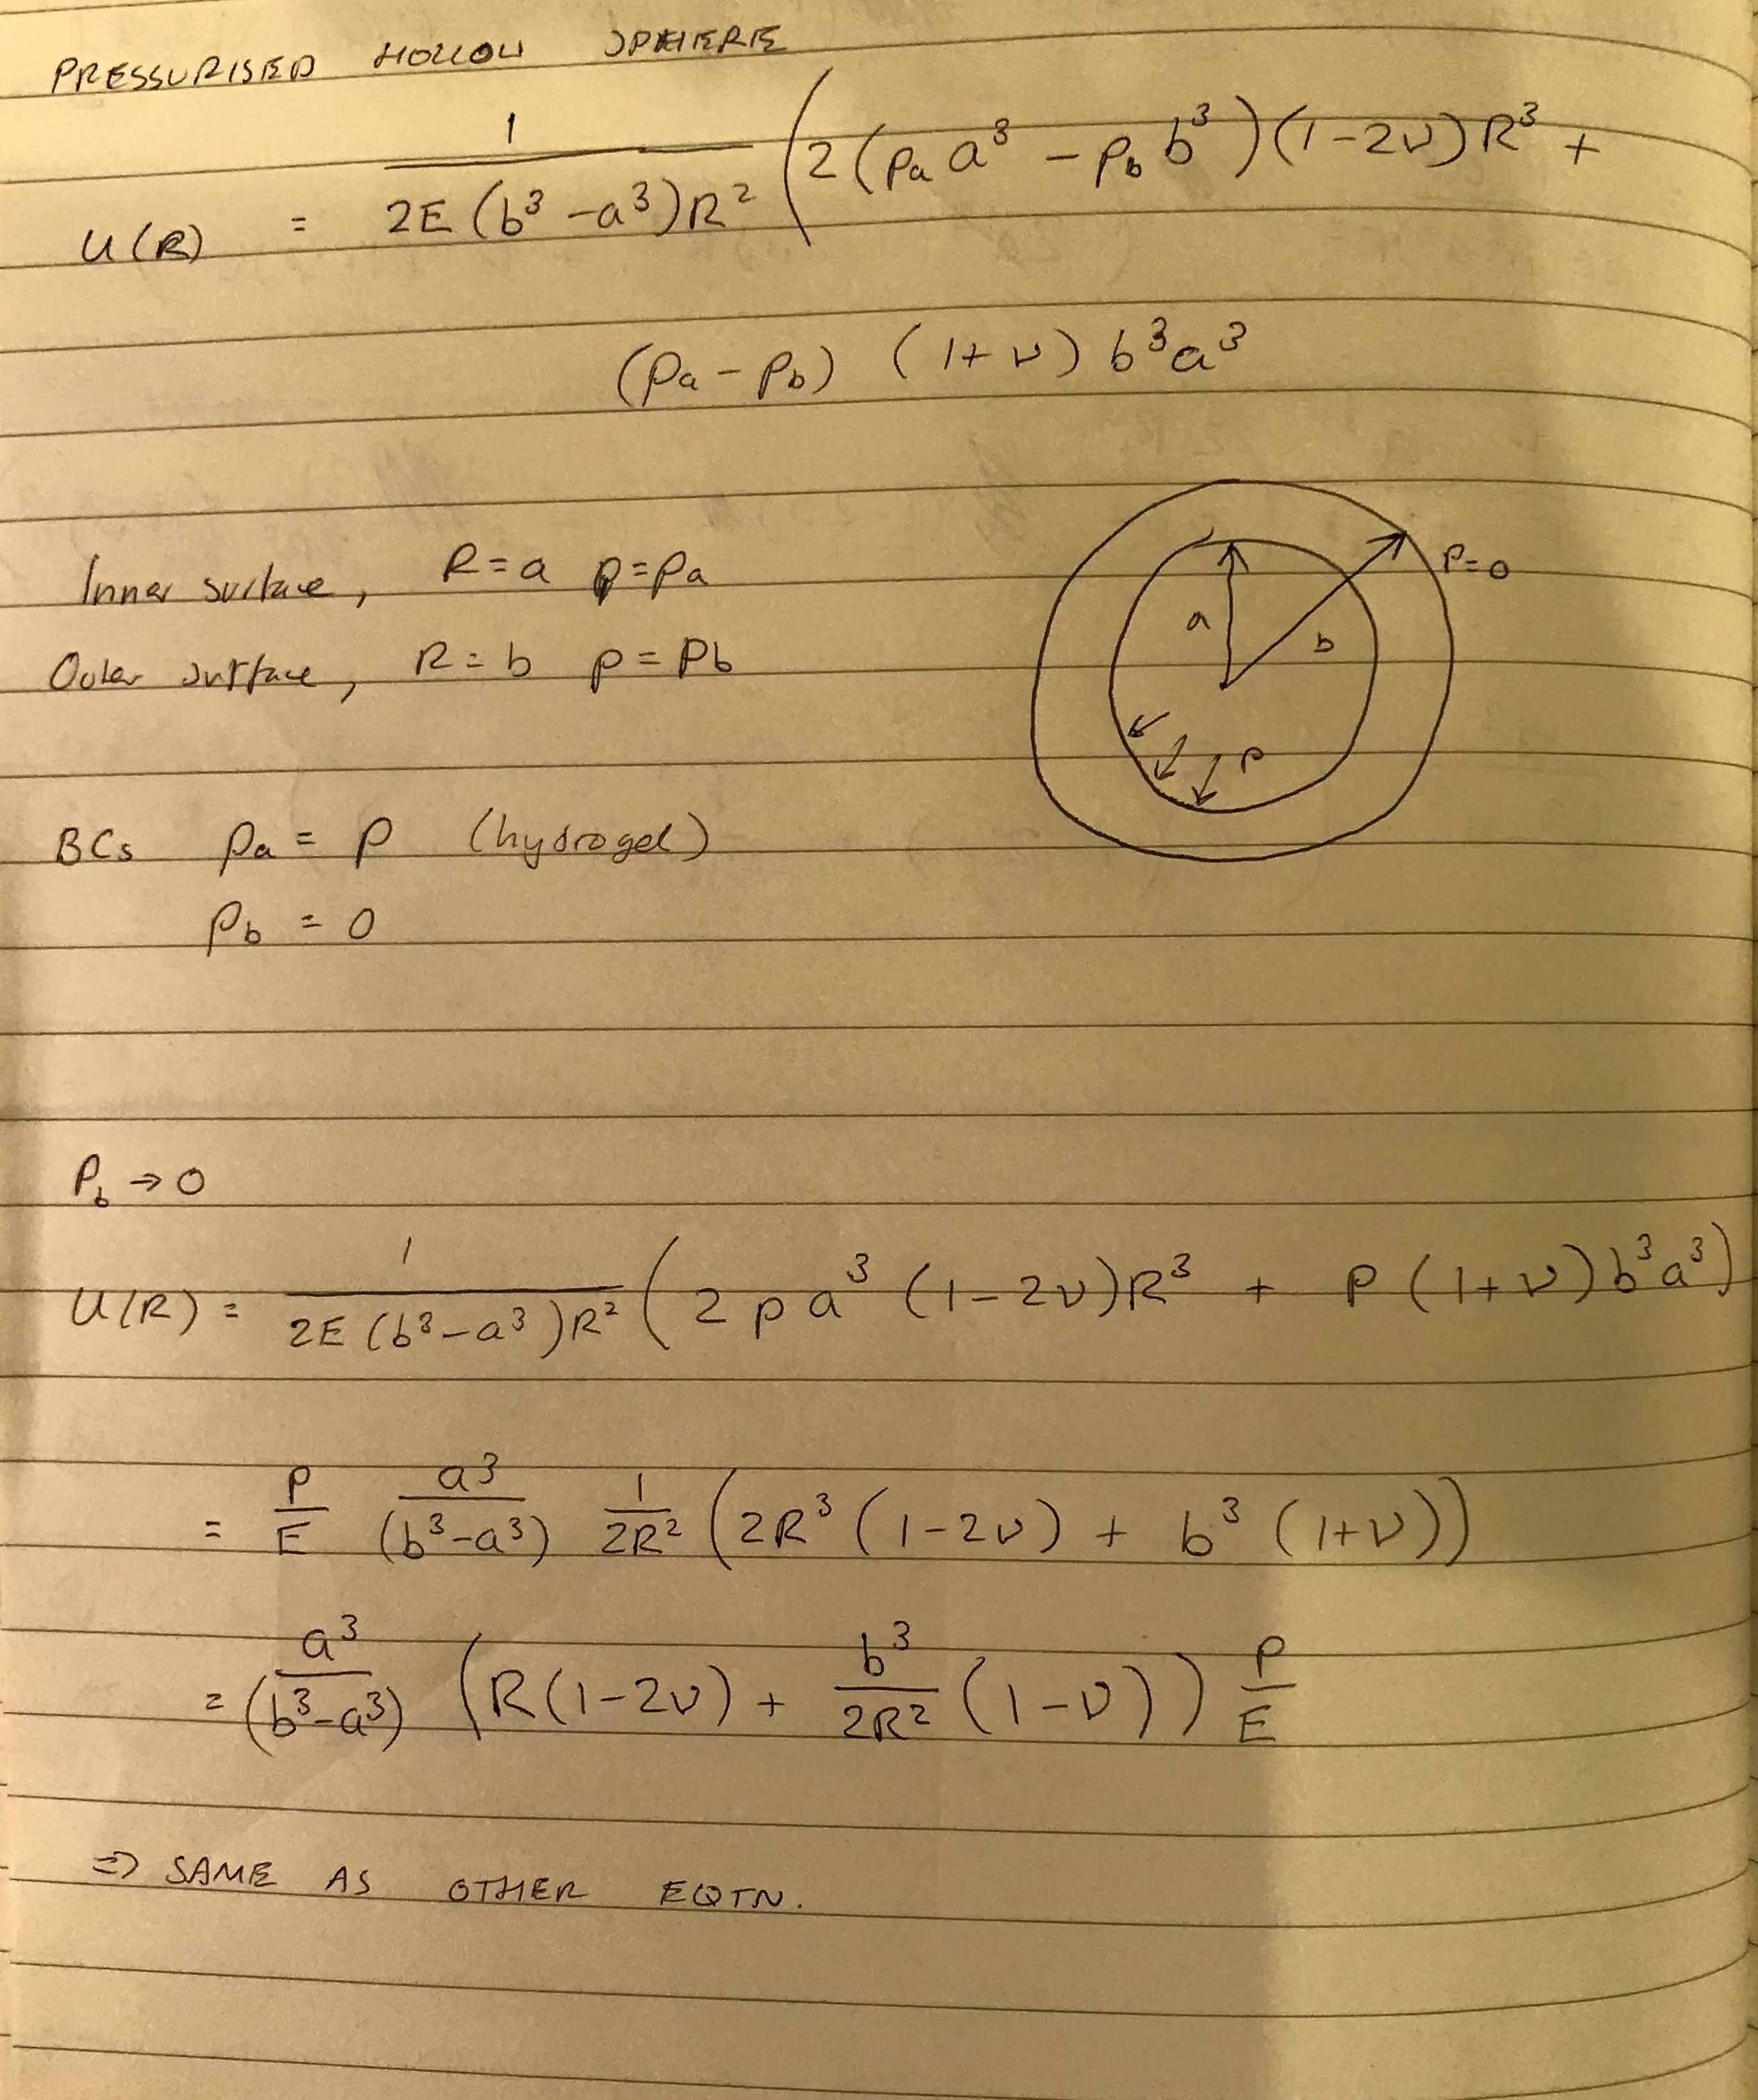 PRESSURISED HOLLOW SPHERE
U(R) = 1 / 2E(b³-a³)R² (2(pₐa³ - p_b b³)(1-2ν)R³ +
(pₐ - p_b) (1+ν) b³a³
Inner surface, R=a p=pₐ
Outer surface, R=b p=p_b
P=0
a
b
p
BCs pₐ = p (hydrogel)
p_b = 0
P_b → 0
U(R) = 1 / 2E(b³-a³)R² (2pa³(1-2ν)R³ + P(1+ν)b³a³)
= P/E a³/(b³-a³) 1/2R² (2R³(1-2ν) + b³(1+ν))
= a³/(b³-a³) (R(1-2ν) + b³/2R² (1-ν)) P/E
⇒ SAME AS OTHER EQTN.